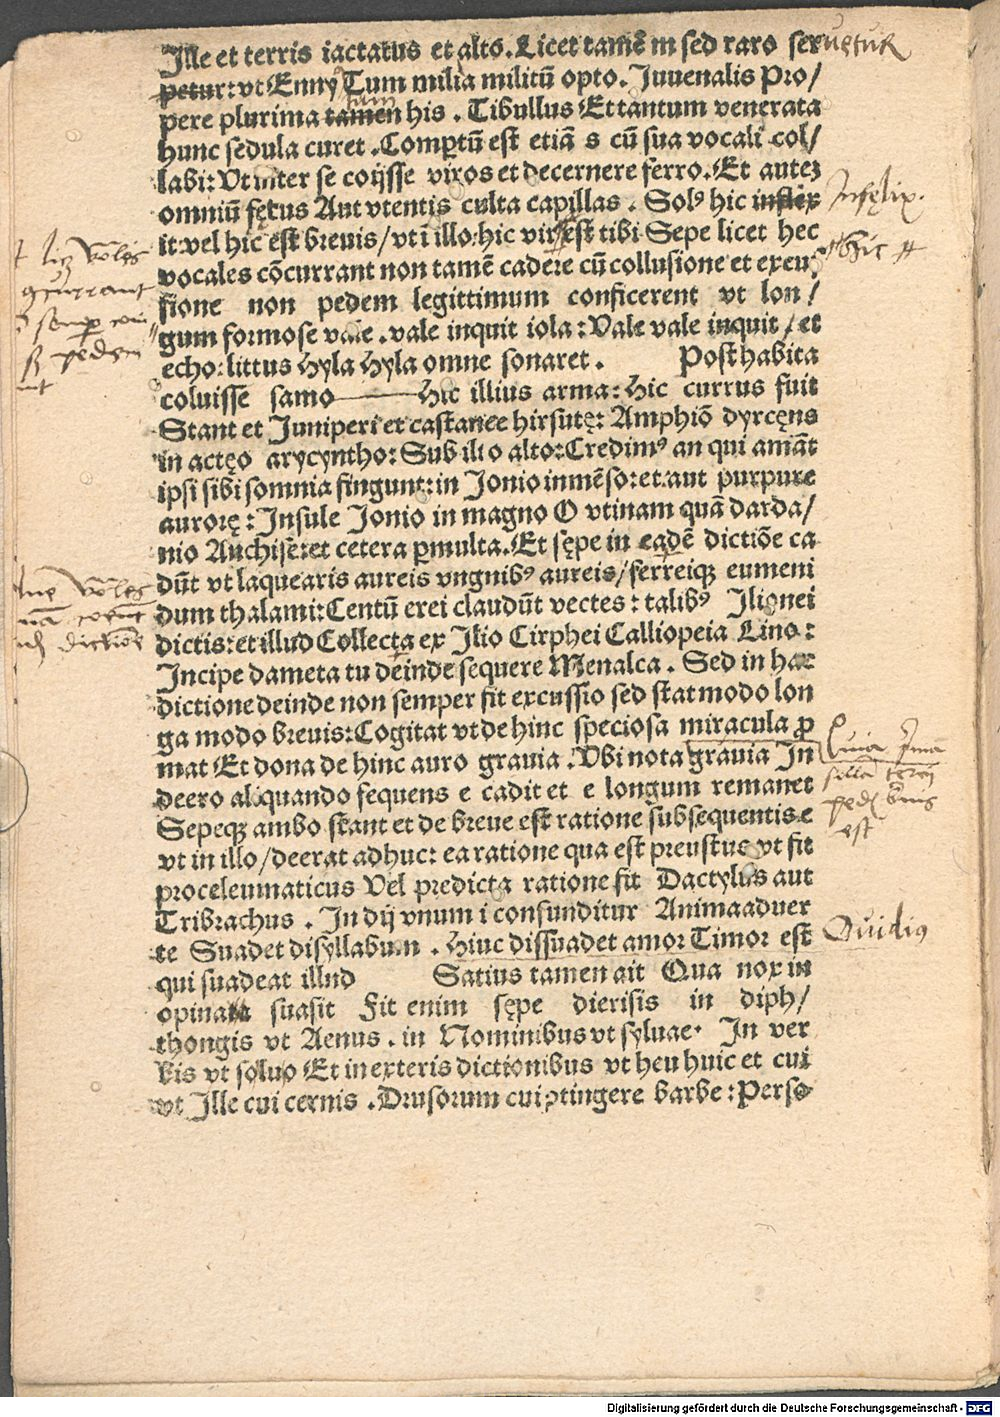 Ille et terris iactatus et alto. Licet tamē m sed raro seruetur
petur: vt Enny Tum milia militū opto. Juuenalis Pro/
pere plurima tamen his . Tibullus Et tantum venerata
hunc sedula curet . Comptū est etiā s cū sua vocali col/
labi: Vt inter se coijsse viros et decernere ferro. Et autez
omniū fętus Aut vtentis culta capillas . Solꝰ hic infler
Infęlix.
it: vel hic est breuis/ vt ī illo: hic vir est tibi Sepe licet hec
hic
vocales cōcurrant non tamē cadere cū collusione et excus
sione non pedem legittimum conficerent vt lon/
gum formose vale . vale inquit iola: Vale vale inquit / et
echo: littus Hyla Hyla omne sonaret . Posthabita
coluisse samo Hic illius arma: Hic currus fuit
Stant et Juniperi et castanee hirsutę: Amphiō dyrcęns
in actęo arycyntho: Sub ilio alto: Credimꝰ an qui amāt
ipsi sibi somnia fingunt: in Jonio inmēso: et aut purpure
aurorę: Insule Jonio in magno O vtinam quā darda/
nio Anchisē: et cetera ꝑmulta. Et sępe in eadē dictiōe ca
dūt vt laquearis aureis vngnibꝰ aureis/ ferreiqꝫ eumeni
dum thalami: Centū erei claudūt vectes: talibꝰ Ilionei
dictis: et illud Collecta ex Ilio Cirphei Calliopeia Lino:
Incipe dameta tu deinde sequere Menalca . Sed in hac
dictione deinde non semper fit excussio sed stat modo lon
ga modo breuis: Cogitat vt de hinc speciosa miracula ꝓ
mat Et dona de hinc auro grauia . Vbi nota grauia In
Quia
deero aliquando sequens e cadit et e longum remanet
Sepeqꝫ ambo stant et de breue est ratione subsequentis e
est
vt in illo/ deerat adhuc: ea ratione qua est preustus vt fit
proceleumaticus Vel predicta ratione fit Dactylus aut
Tribrachus . In dij vnum i confunditur Animaaduer
te Suadet disyllabum . Hinc dissuadet amor Timor est
Ouidiꝰ
qui suadeat illud Satius tamen ait Qua nox in
opinata suasit Fit enim sępe dierisis in diph/
thongis vt Aenus . in Nominibus vt syluae. In ver
bis vt soluo Et in exteris dictionibus vt heu huic et cui
vt Ille cui cernis . Drusorum cui ꝯtingere barbe: Perse
Digitalisierung gefördert durch die Deutsche Forschungsgemeinschaft - DFG